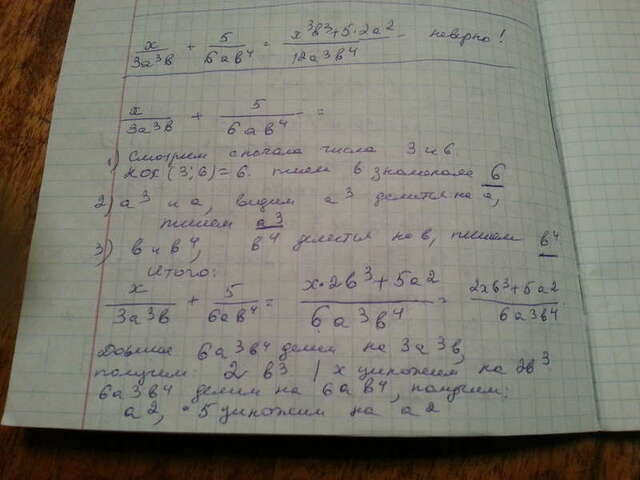 x/(3a³b) + 5/(6ab⁴) = (x³b³+5·2a²)/(12a³b⁴) неверно!
x/(3a³b) + 5/(6ab⁴) =
1) Смотрим сначала числа 3 и 6.
НОК (3;6)=6. пишем в знаменателе 6
2) a³ и a, видим a³ делится на a,
пишем a3
3) b и b⁴, b⁴ делится на b, пишем b⁴
Итого:
x/(3a³b) + 5/(6ab⁴) = (x·2b³+5a²)/(6a³b⁴) = (2xb³+5a2)/(6a3b4)
6a³b⁴ делим на 3a³b,
получим: 2 b³ / x умножим на 2b³
6a³b⁴ делим на 6ab⁴, получим:
a², 5 умножим на a2